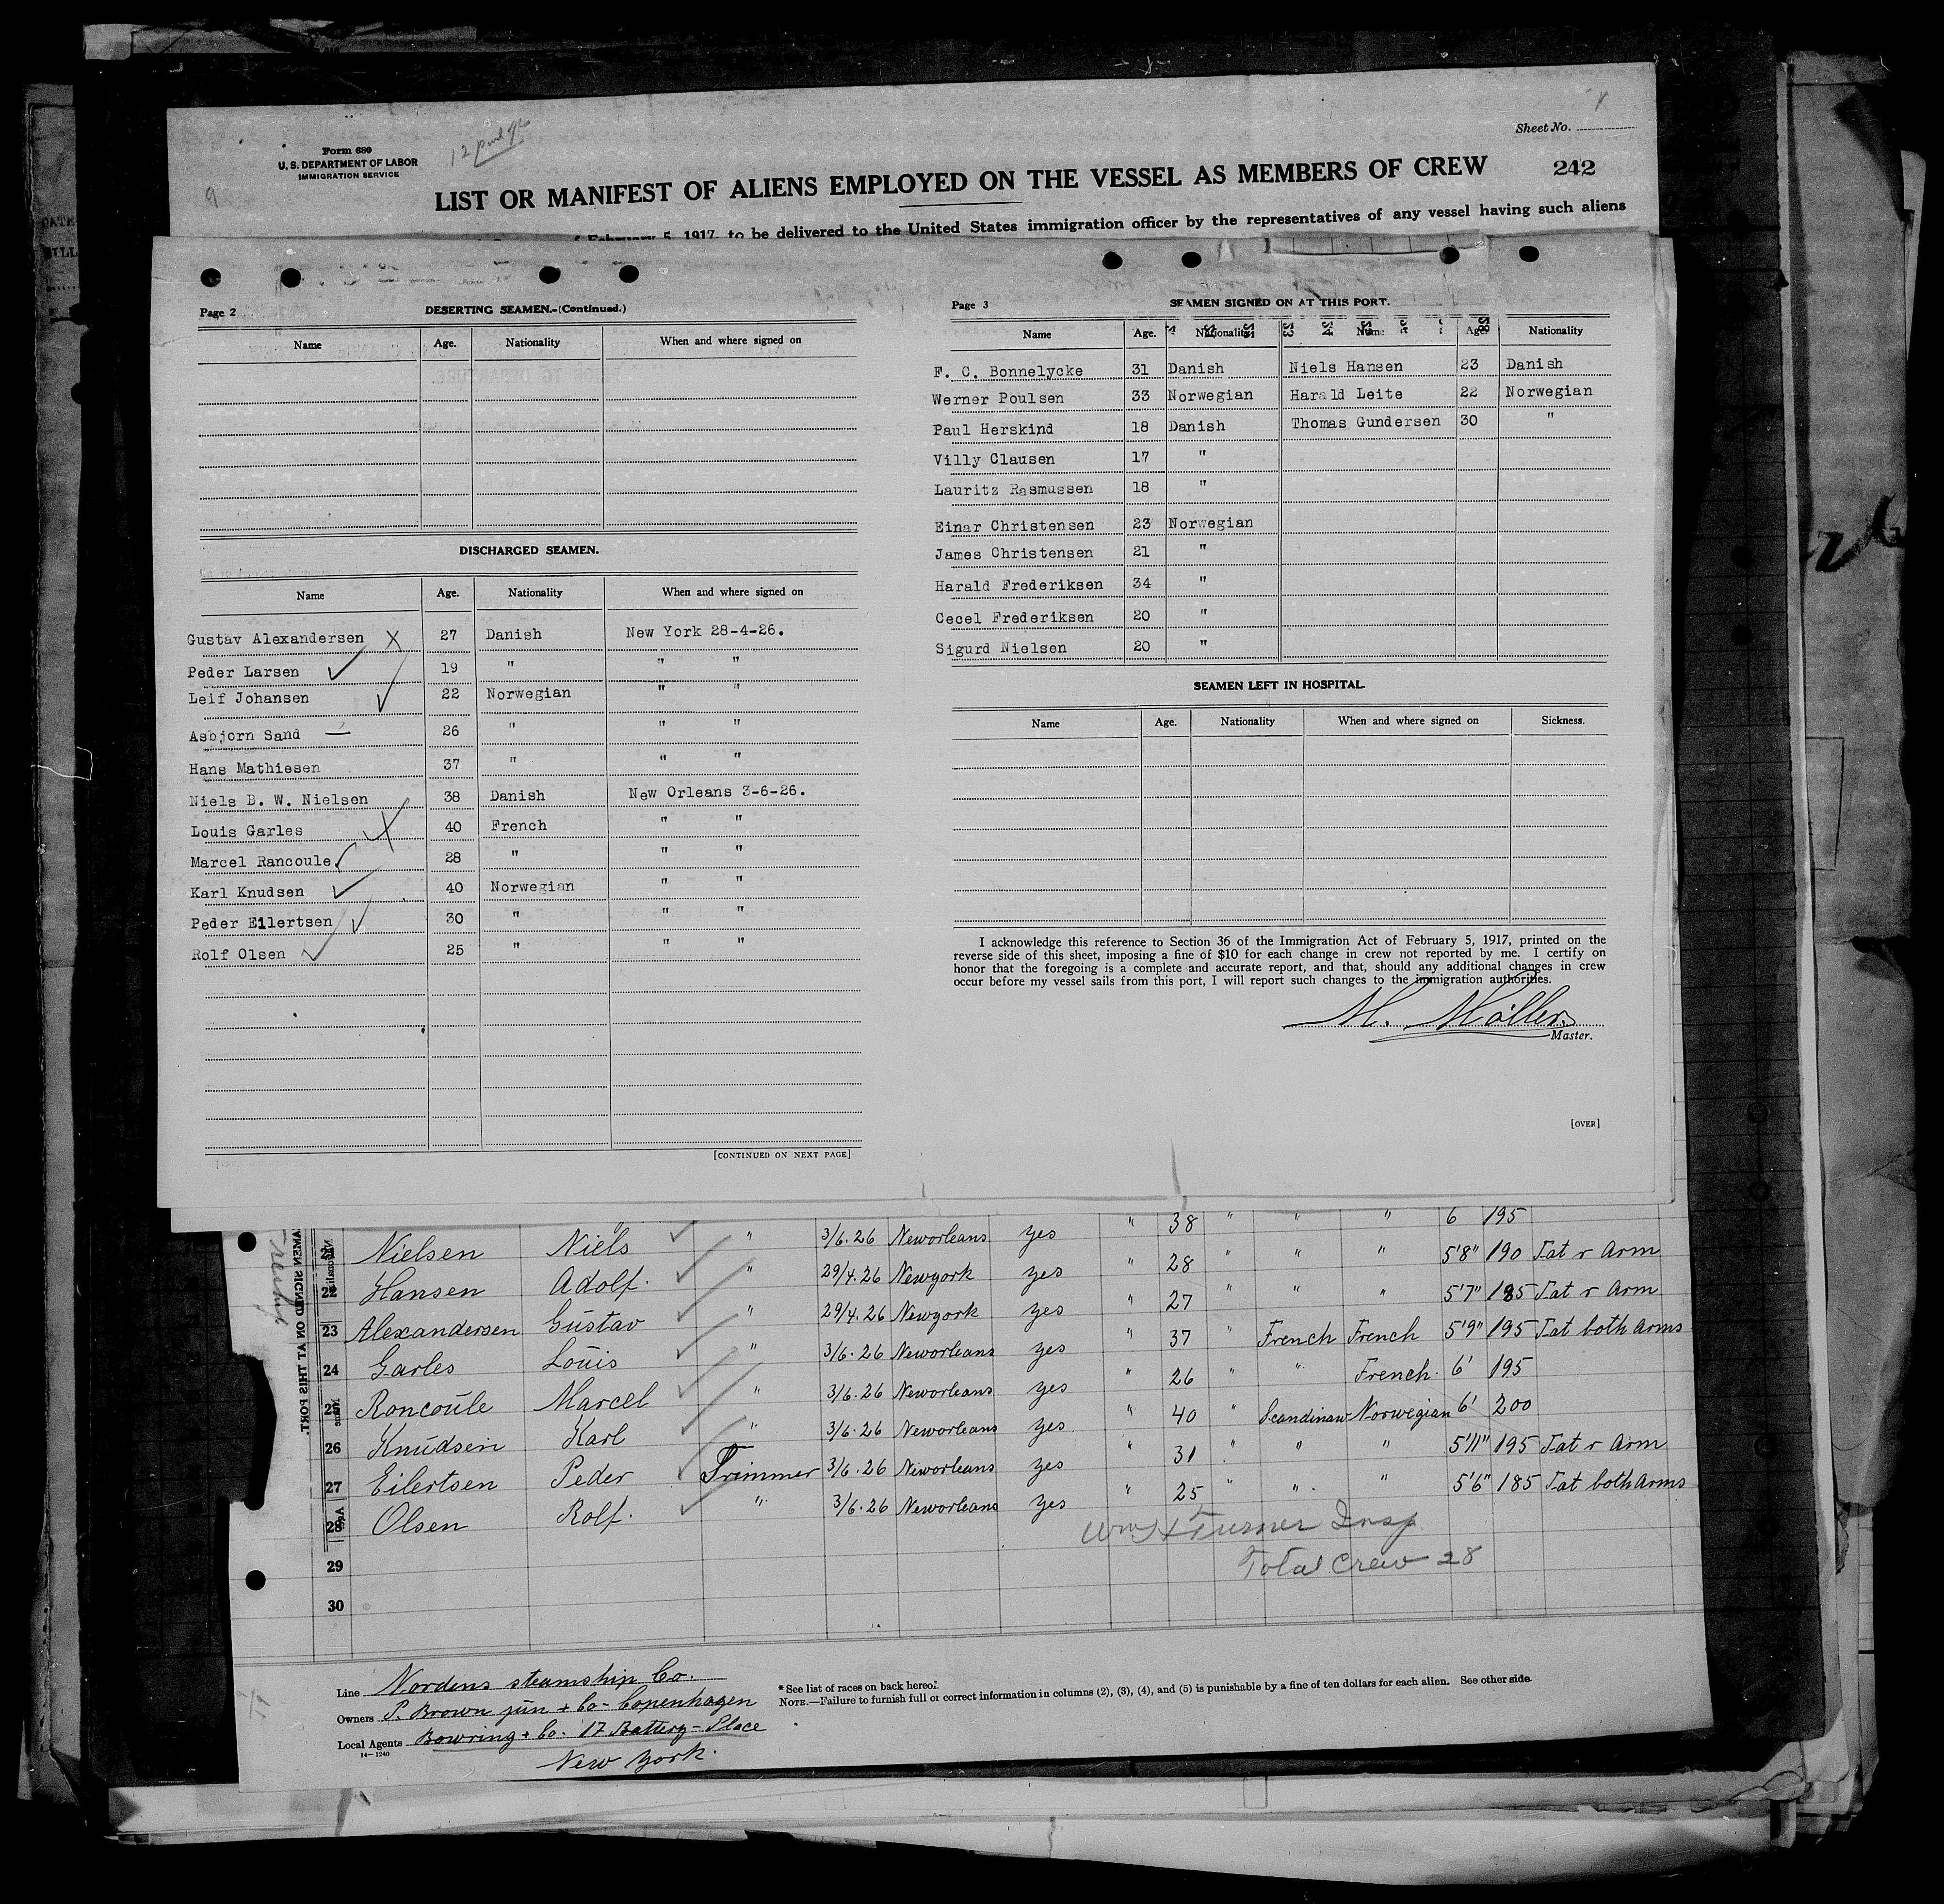 Form 680
U. S. DEPARTMENT OF LABOR
IMMIGRATION SERVICE
Sheet No.
LIST OR MANIFEST OF ALIENS EMPLOYED ON THE VESSEL AS MEMBERS OF CREW
242
February 5, 1917, to be delivered to the United States immigration officer by the representatives of any vessel having such aliens
Page 2 DESERTING SEAMEN.—(Continued.)
Name Age. Nationality When and where signed on
DISCHARGED SEAMEN.
Name Age. Nationality When and where signed on
Gustav Alexandersen X 27 Danish New York 28-4-26.
Peder Larsen ✓ 19 " " "
Leif Johansen ✓ 22 Norwegian " "
Asbjorn Sand — 26 " " "
Hans Mathiesen 37 " " "
Niels B. W. Nielsen 38 Danish New Orleans 3-6-26.
Louis Garles X 40 French " "
Marcel Rancoule ✓ 28 " " "
Karl Knudsen ✓ 40 Norwegian " "
Peder Eilertsen ✓ 30 " " "
Rolf Olsen ✓ 25 " " "
[CONTINUED ON NEXT PAGE]
Page 3 SEAMEN SIGNED ON AT THIS PORT.
Name Age. Nationality Name Age. Nationality
F. C. Bonnelycke 31 Danish Niels Hansen 23 Danish
Werner Poulsen 33 Norwegian Harald Leite 22 Norwegian
Paul Herskind 18 Danish Thomas Gundersen 30 "
Villy Clausen 17 "
Lauritz Rasmussen 18 "
Einar Christensen 23 Norwegian
James Christensen 21 "
Harald Frederiksen 34 "
Cecel Frederiksen 20 "
Sigurd Nielsen 20 "
SEAMEN LEFT IN HOSPITAL.
Name Age. Nationality When and where signed on Sickness.
I acknowledge this reference to Section 36 of the Immigration Act of February 5, 1917, printed on the
reverse side of this sheet, imposing a fine of $10 for each change in crew not reported by me. I certify on
honor that the foregoing is a complete and accurate report, and that, should any additional changes in crew
occur before my vessel sails from this port, I will report such changes to the immigration authorities.
M. Möller
Master.
[OVER]
21 Nielsen Niels ✓ " 3/6.26 Neworleans yes " 38 " " " 6 195
22 Hansen Adolf. ✓ " 29/4.26 Newyork yes " 28 " " " 5'8" 190 Tat r Arm
23 Alexandersen Gustav ✓ " 29/4.26 Newyork yes " 27 " " " 5'7" 185 Tat r Arm
24 Garles Louis ✓ " 3/6.26 Neworleans yes " 37 " French French 5'9" 195 Tat both Arms
25 Roncoule Marcel ✓ " 3/6.26 Neworleans yes " 26 " " French. 6' 195
26 Knudsen Karl ✓ " 3/6.26 Neworleans yes " 40 " Scandinaw Norwegian 6' 200
27 Eilertsen Peder ✓ Trimmer 3/6.26 Neworleans yes " 31 " " " 5'11" 195 Tat r Arm
28 Olsen Rolf. ✓ " 3/6.26 Neworleans yes " 25 " " " 5'6" 185 Tat both Arms
Wm H Turner Insp
29 Total Crew 28
30
SEAMEN SIGNED ON AT THIS PORT.
Line Nordens steamship Co.
Owners P. Brown jun + Co - Copenhagen
Local Agents Bowring + Co. 17 Battery-Place
14—1240
New York.
* See list of races on back hereof.
NOTE.—Failure to furnish full or correct information in columns (2), (3), (4), and (5) is punishable by a fine of ten dollars for each alien. See other side.